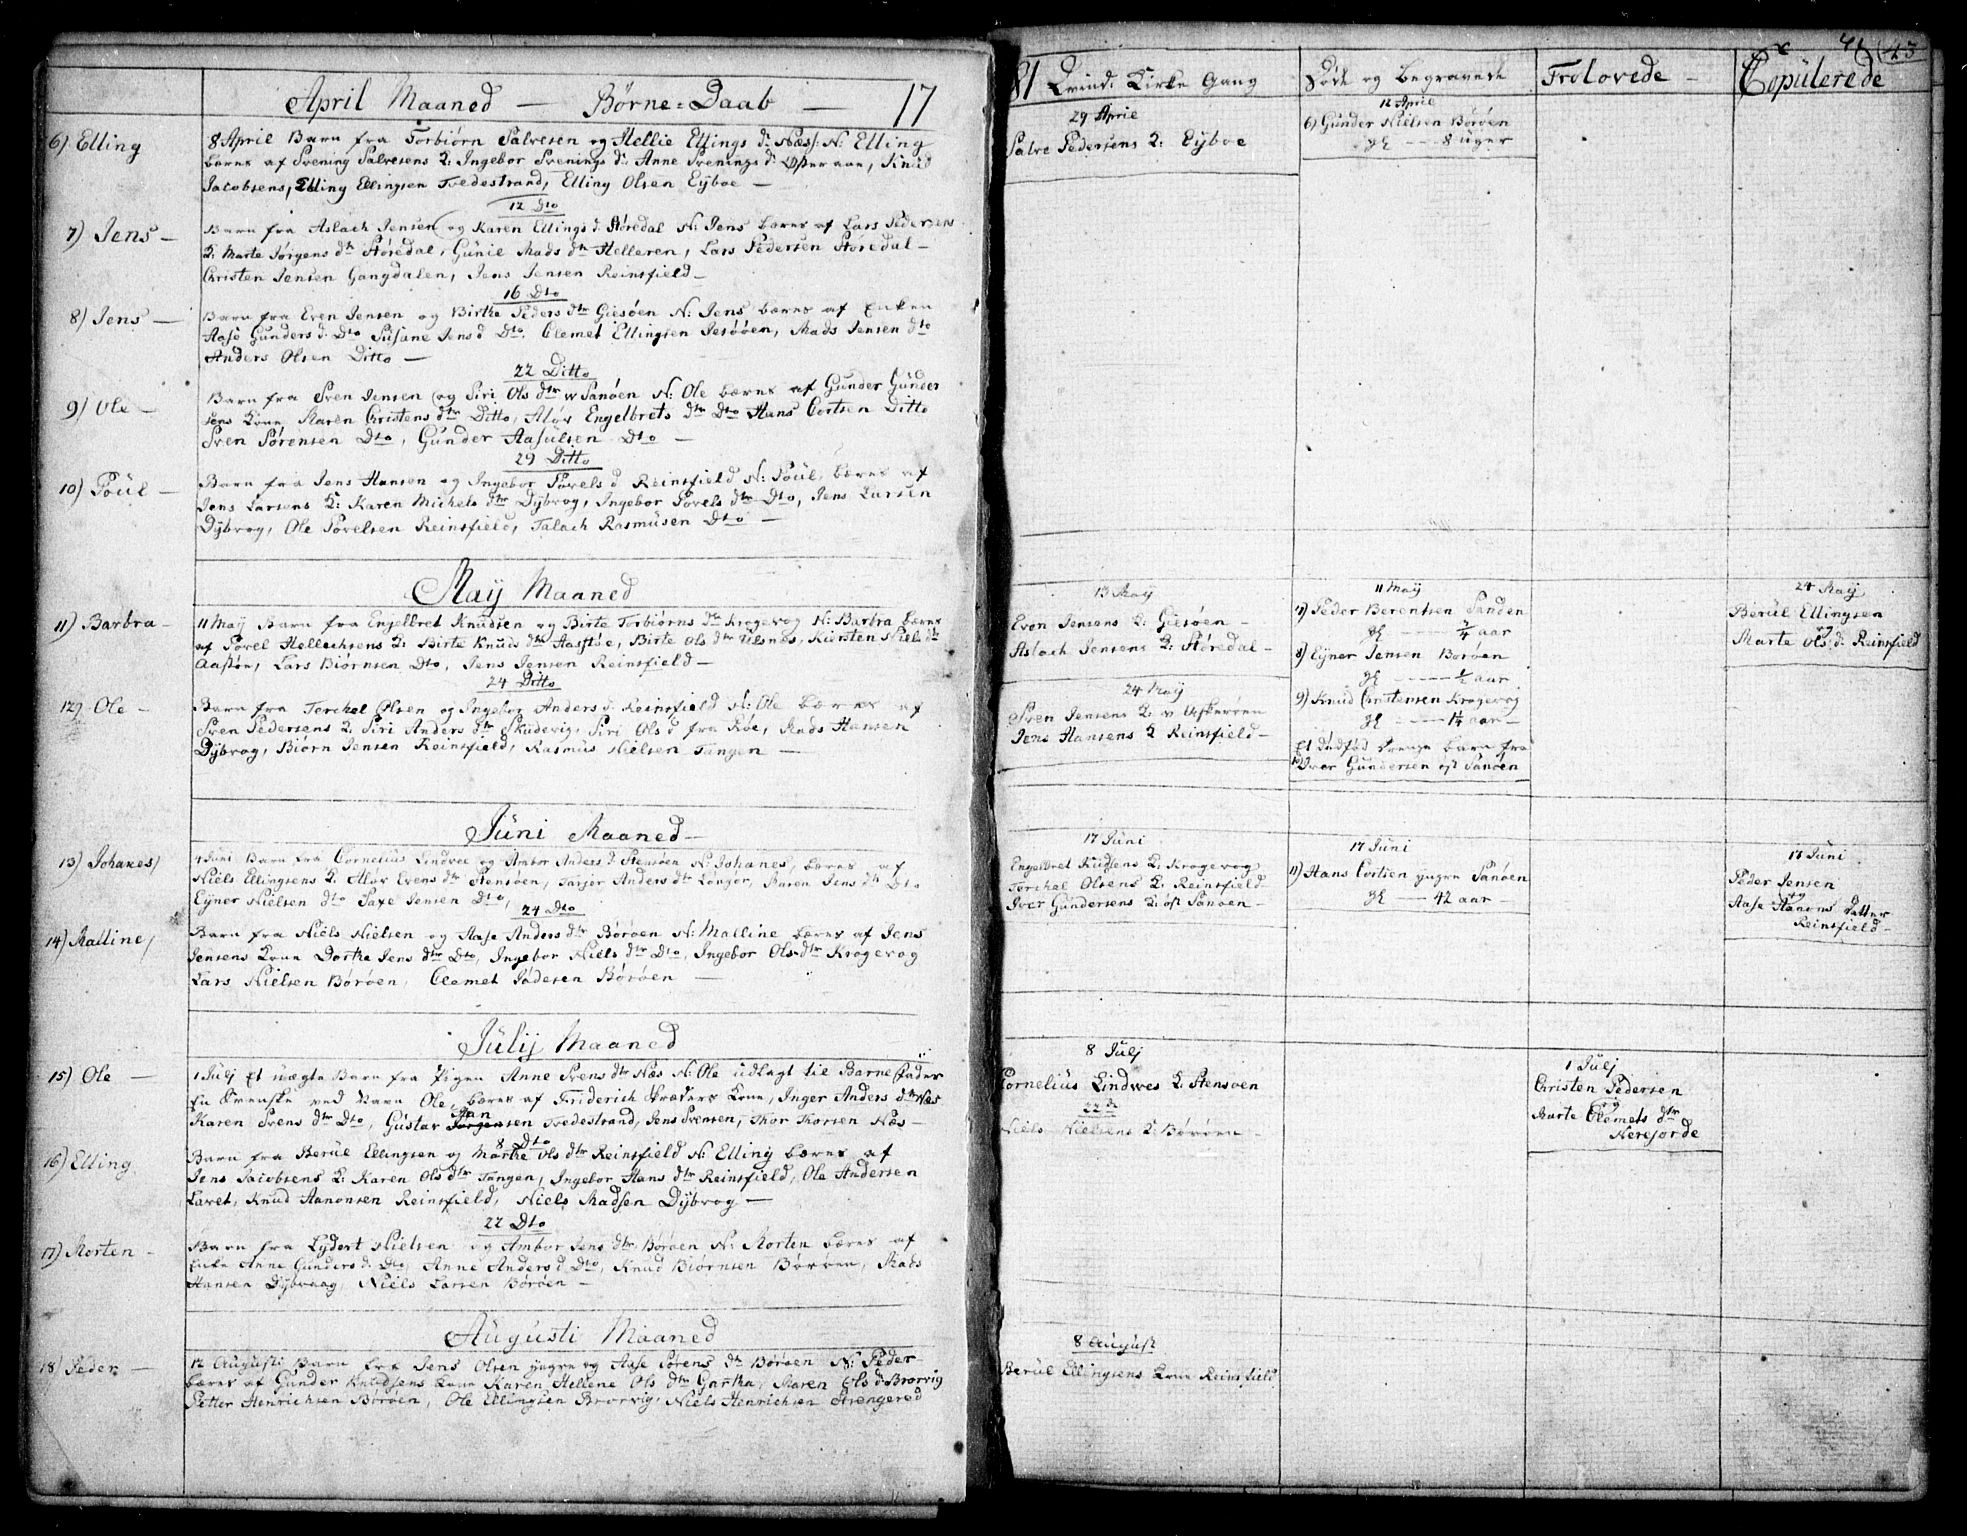 April Maaned — Børne-Daab — 17
6) Elling
8 April Barn fra Torbiørn Salvesen og Hellie Ellings d: Næs: N: Elling
bæres af Svening Salvesens K: Ingebor Svenings d: Anne Svenings d: Knud
Jacobsens, Elling Ellingsen Tvedestrand, Elling Olsen Eÿboe —
12 Dto
7) Jens —
Barn fra Aslach Jensen og Karen Ellings d: Støredal N: Jens bæres af Lars Pedersens
K: Marte Jørgens dtr Støredal, Gunil Mads dtr Helleren, Lars Pedersen Støredal —
Christen Jensen Gangdalen, Jens Jensen Reinsfield —
16 Dto
8) Jens —
Barn fra Even Jensen og Birthe Peders dtr Giesøen N: Jens bæres af Enken
Aase Gunders d: Dto Susane Jens d Dto. Clemet Ellingsen Jesøen, Mads Jensen dto
Anders Olsen Ditto —
22 Ditto
9) Ole —
Barn fra Sven Jensen og Siri Ols dtr w Sanøen N: Ole bæres af Gunder Gunder
sens Kone, Maren Christens dtr Ditto, Aløv Engelbrets dtr Dto Hans Cortsen Ditto
Sven Sørensen Dto, Gunder Aasulsen Dto —
29 Ditto
10) Poul —
Barn fra Jens Hansen og Ingebor Povels d Reinsfield N: Poul, bæres af
Jens Larsens K: Karen Michels dtr Dÿbvog, Ingebor Povels dtr Dto, Jens Larsen
Dÿbvog, Ole Povelsen Reinsfield, Talach Rasmusen Dto —
Maÿ Maaned
11) Barbra —
11 Maÿ Barn fra Engelbret Knudsen og Birte Torbiørns dtr Krogevog N: Barbra bæres
af Povel Hellechsens K: Birte Knuds dtr Aasstøe, Birte Ols dtr Ulsnes, Kiersten Niels dtr
Aastøe, Lars Biørnsen Dto, Jens Jensen Reinsfield —
24 Ditto
12) Ole —
Barn fra Terchel Olsen og Ingebor Anders d. Reinsfield N: Ole bæres af
Sven Pedersens K: Siri Anders dtr Skudevig, Siri Ols d fra Røe, Mads Hansen
Dÿbvog, Biørn Jensen Reinsfield, Rasmus Nielsen Tangen —
Juni Maaned —
13) Johanes
4 Juni Barn fra Cornelius Lindvee og Ambor Anders d: Stensøen N: Johanes, bæres af
Niels Ellingsens K: Aløv Evens dtr Stensøen, Tarjer Anders dtr Løngør, Maren Jens dtr Dto
Eÿner Nielsen dto Saxe Jensen Dto,
24 Dto
14) Malline
Barn fra Niels Nielsen og Aase Anders dtr Børøen N: Malline bæres af Jens
Jensens Kone Dorthe Jens dtr Dto, Ingebor Niels dtr Dto, Ingebor Ols dtr Krogevog
Lars Nielsen Børøen, Clemet Pedersen Børøen —
Julÿ Maaned
15) Ole —
1 Julj Et uægte Barn fra Pigen Anne Svens dtr Næs N: Ole udlagt til Barne Fader
En Svenske ved Navn Ole, bæres af Friderich Kone, Inger Anders dtr Næs
Karen Svens dtr Dto, Gustav Jørgensen Tvedestrand, Jens Svensen, Thor Thorsen Næs —
8 Dto
16) Elling
Barn fra Berül Ellingsen og Marthe Ols dtr Reinsfield N: Elling bæres af
Jens Jacobsens K: Karen Ols dtr Tangen, Ingebor Hans dtr Reinsfield, Ole Andersen
Lavet, Knud Aanonsen Reinsfield, Niels Madsen Dÿbvog —
22 Dto
17) Morten —
Barn fra Lydert Nielsen og Ambor Jens dtr Børøen N: Morten bæres af
Enke Anne Gunders d. Dto, Anne Anders d Dto, Knud Biørnsen Børøen, Mads
Hansen Dÿbvaag, Niels Larsen Børøen —
Augusti Maaned
18) Peder —
12 Augusti Barn fra Jens Olsen yngre og Aase Sørens dtr Børøen N: Peder
bæres af Gunder Knudsens Kone Karen, Hellene Ols dtr Gartha, Maren Ols d: Brorvig
Petter Henrichsen Børøen, Ole Ellingsen Brorvig, Niels Henrichsen Strengered
81 Qvind: Kirke Gang
29 April
Salve Pedersens K: Eÿboe
13 Maÿ
Even Jensens K: Giesøen —
Aslach Jensens K: Støredal —
24 Maÿ
Sven Jensens K: w
Jens Hansens K Reinsfield —
17 Juni
Engelbret Kudsens K: Krogevog
Terchel Olsens K: Reinsfield
Iver Gundersens K: øst Sanøen —
8 Julj
Cornelius Lindwes K: Stensøen
22 d
Niels Nielsens K: Børøen —
8 August
Berül Ellingsens Kone Reinsfield
Døde og Begravede
12 April
6) Gunder Nielsen Børøen
gl — 8 uger
11 Maÿ
7) Peder Berentsen Sanden
gl — 3/4 aar
8) Eÿner Jensen Børøen
gl — 1/2 aar
9) Knud Christensen Krogevog
gl — 1 1/4 aar —
Et dødfød Drenge barn fra
10) Iver Gundersen øst Sanøen
17 Juni
11) Hans Cortsen yngre Sanøen
gl — 42 aar —
Trolovede —
1 Julj
Christen Pedersen
og
Marte Clemets dtr
Nerejorde
41 43
Copulerede
24 Maÿ
Berül Ellingsen
og
Marte Ols d: Reinsfield
17 Juni
Peder Jensen
og
Aase Aanons Datter
Reinsfield —